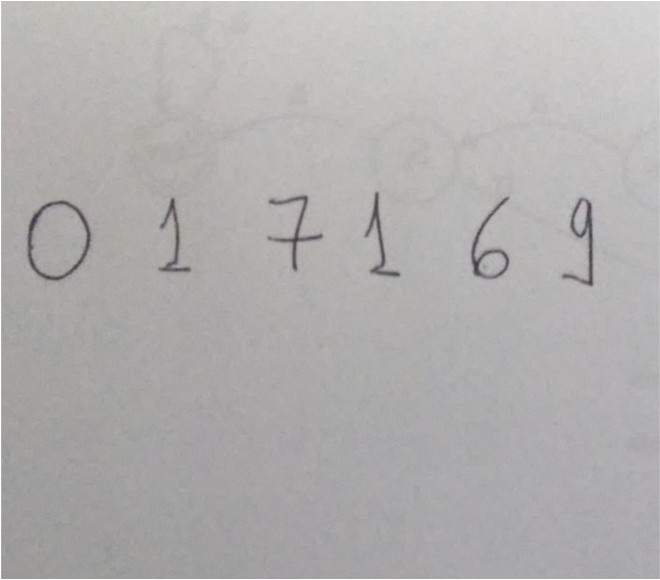 0 1 7 1 6 9